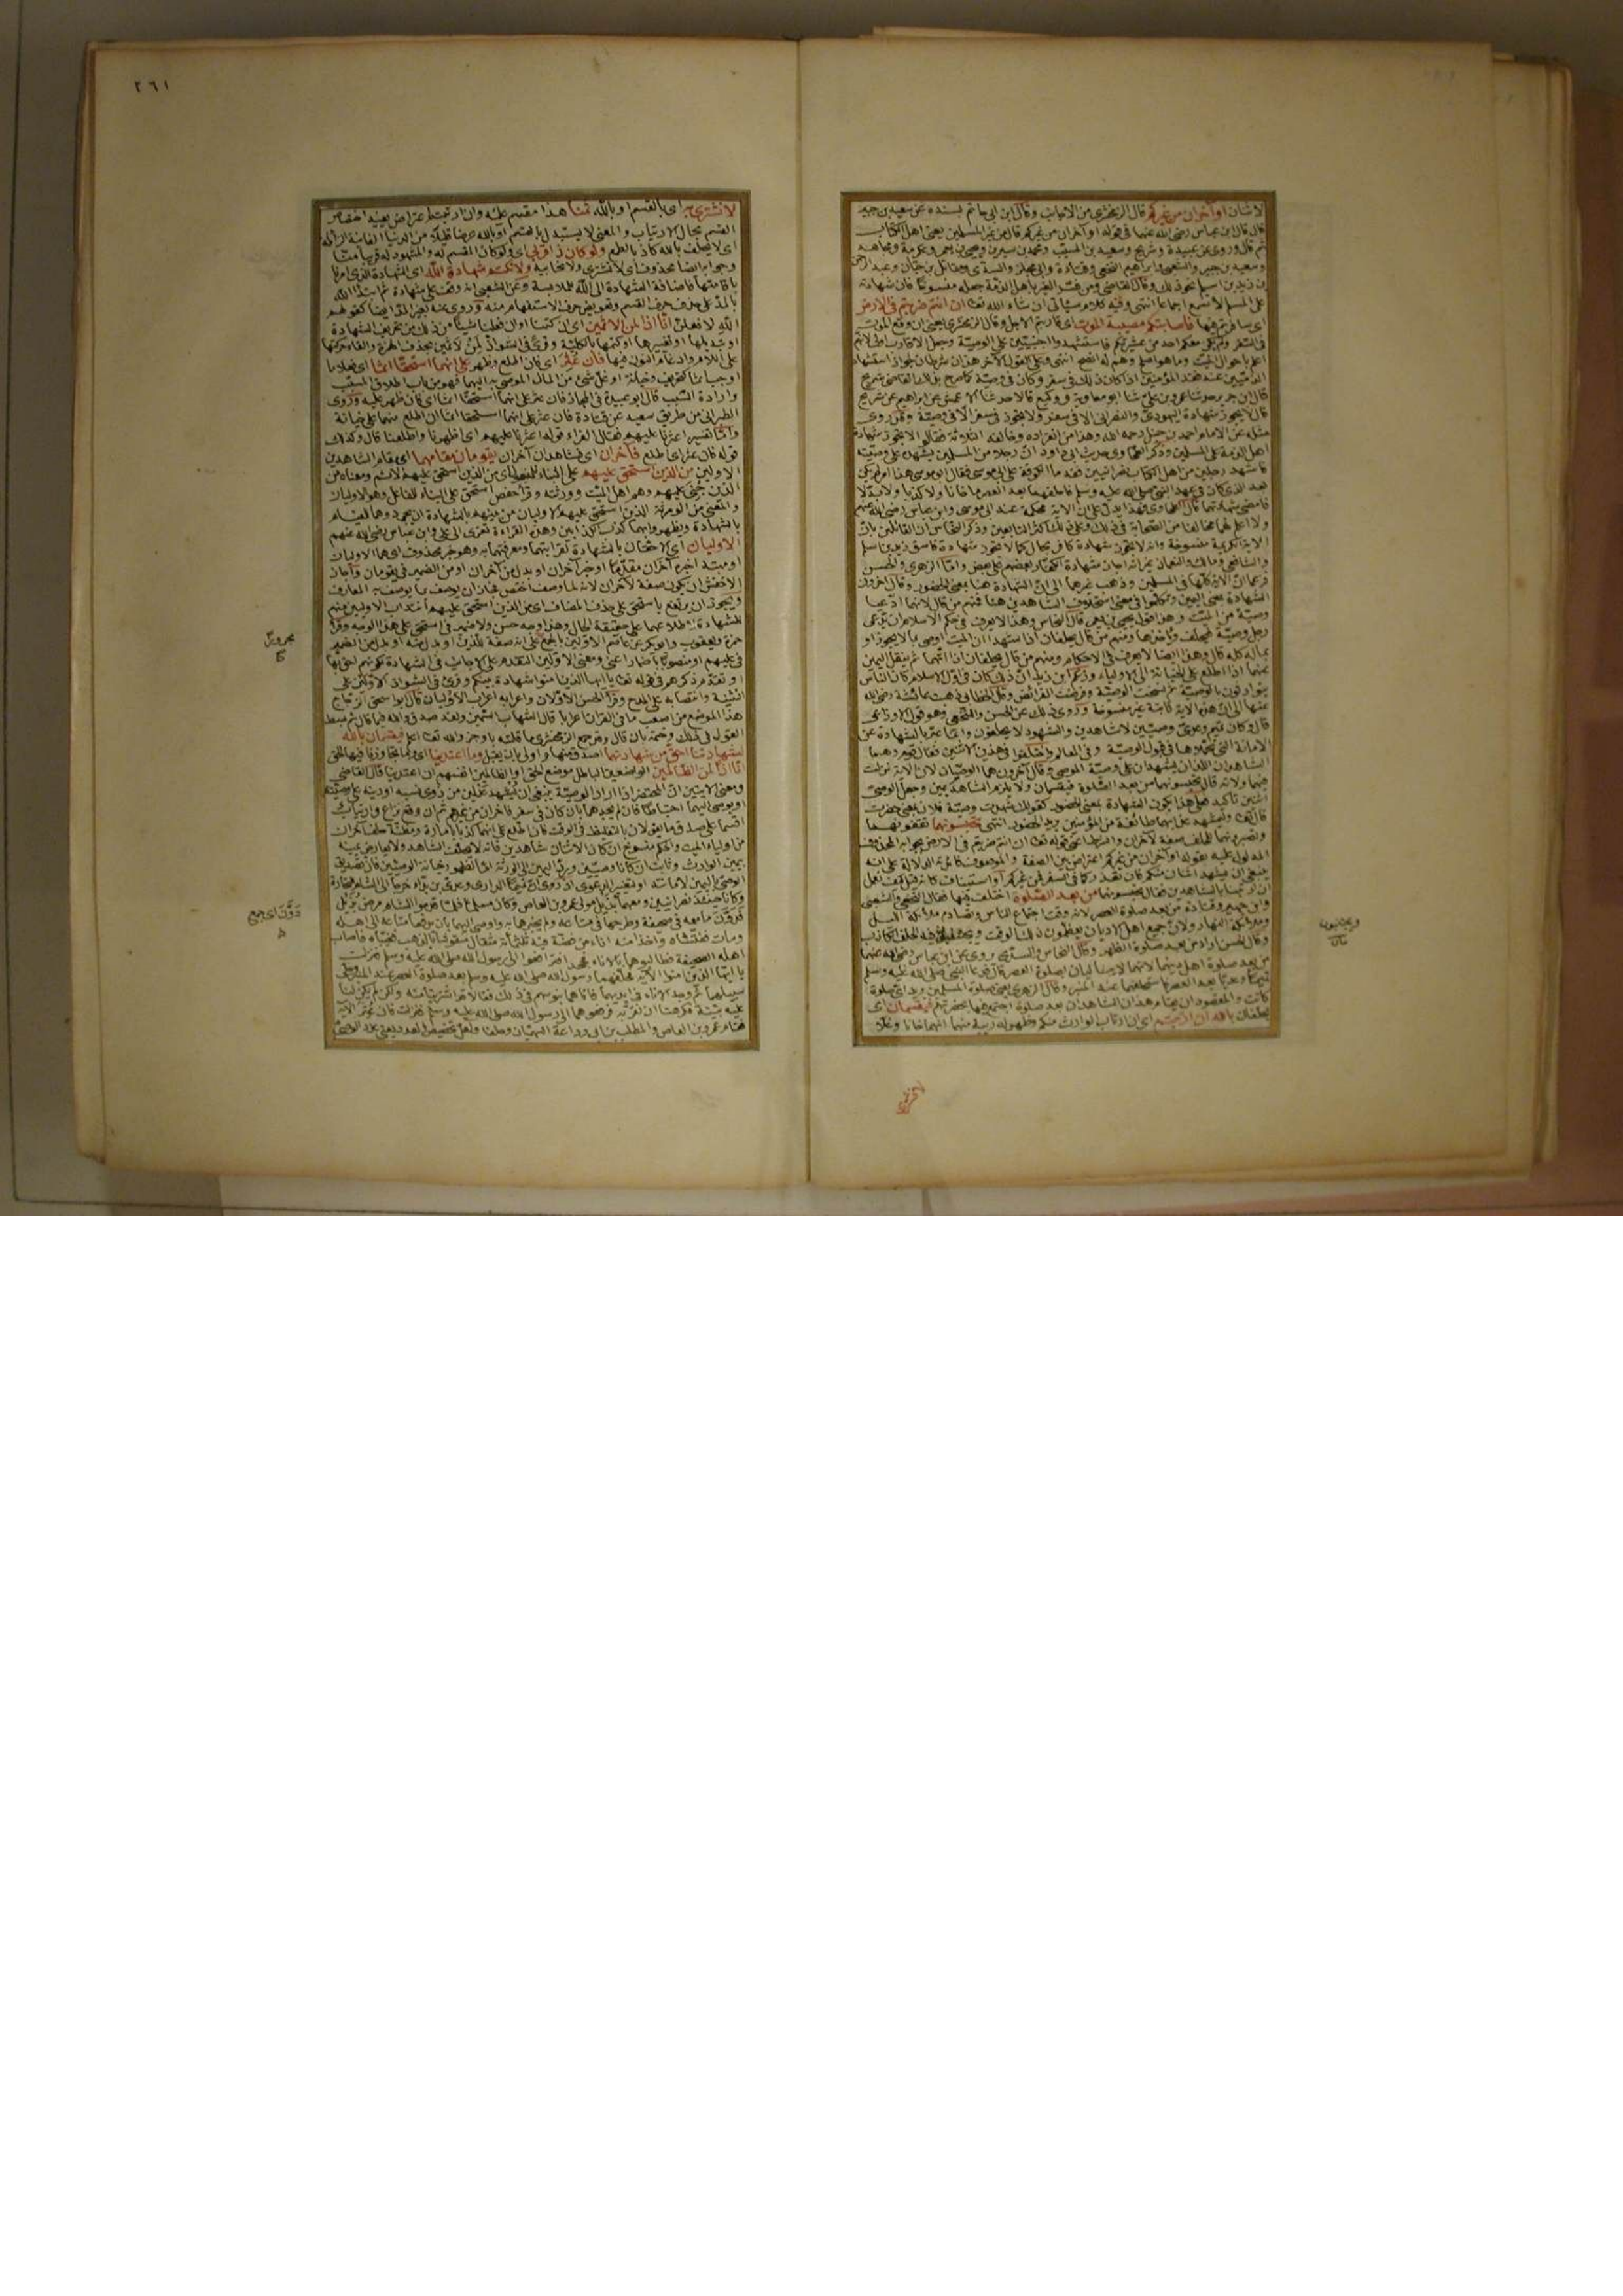 لاثنان او آخران من غيركم قال الزمخشري من الاجانب وقال ابن ابي حاتم بسنده عن سعيد بن جبير
قال قال ابن عباس رضي الله عنهما في قوله او آخران من غيركم قال من غير المسلمين يعني اهل الكتاب
ثم قال وروي عن عبيدة وشريح وسعيد بن المسيب ومحمد بن سيرين ويحيى بن يعمر وعكرمة ومجاهد
وسعيد بن جبير والشعبي وابراهيم النخعي وقتادة وابي مجلز والسدي ومقاتل بن حيان وعبد الرحمن
بن زيد بن اسلم نحو ذلك وقال القاضي ومن فسر الغير باهل الذمة جعله منسوخا فان شهادته
على المسلم لا تسمع اجماعا انتهى وفيه كلام سيأتي ان شاء الله تعالى ان انتم ضربتم في الارض
اي سافرتم فيها فاصابتكم مصيبة الموت اي قاربتم الاجل وقال الزمخشري يعني ان وقع الموت
في السفر ولم يكن معكم احد من عشيرتكم فاستشهدوا اجنبيين على الوصية وجعل الاقارب اولى لانهم
اعلم باحوال الميت وما هو اصلح وهم له انصح انتهى وعلى القول الآخر هذان شرطان لجواز استشهاد
الذميين عند فقد المؤمنين اذا كان ذلك في سفر وكان في وصية كما صرح بذلك القاضي شريح
قال ابن جرير حدثنا عمرو بن علي ثنا ابو معاوية ووكيع قالا حدثنا الاعمش عن ابراهيم عن شريح
قال لا يجوز شهادة اليهودي والنصراني الا في سفر ولا يجوز في سفر الا في وصية وقد روي
مثله عن الامام احمد بن حنبل رحمه الله وهذا من انفراده وخالفه الثلاثة فقالوا لا يجوز شهادة
اهل الذمة على المسلمين
ولا اعلم لهما مخالفا من الصحابة في ذلك وعلى ذلك اكثر التابعين وذكر النحاس ان القائلين بان
الاية الكريمة منسوخة وانه لا يجوز شهادة كافر بحال كما لا يجوز شهادة فاسق زيد بن اسلم
والشافعي ومالك والنعمان غير انه اجاز شهادة الكفار بعضهم على بعض واما الزهري والحسن
فزعما ان الاية كلها في المسلمين وذهب غيرهما الى ان الشهادة هنا بمعنى الحضور وقال آخرون
الشهادة بمعنى اليمين وتكلموا في معنى استحلاف الشاهدين هنا فمنهم من قال لانهما ادعيا
وصية من الميت وهذا قول يحيى بن يعمر قال النحاس وهذا لا يعرف في حكم الاسلام ان يدعي
رجل وصية فيحلف ويأخذها ومنهم من قال يحلفان اذا شهدا ان الميت اوصى بما لا يجوز او
بماله كله قال وهذا ايضا لا يعرف في الاحكام ومنهم من قال يحلفان اذا اتهما ثم ينقل اليمين
عنهما اذا اطلع على الخيانة الى الاولياء وزعم ابن زيد ان ذلك كان في اول الاسلام كان الناس
يتوارثون بالوصية ثم نسخت الوصية وفرضت الفرائض وقال الخطابي ذهبت عائشة رضي الله
عنها الى ان هذه الاية ثابتة غير منسوخة وروي ذلك عن الحسن والنخعي وهو قول الاوزاعي
قال وكان تميم وعدي وصيين لا شاهدين والشهود لا يحلفون وانما عبر بالشهادة عن
الامانة التي تحملاها في قبول الوصية وفي المعالم واختلفوا في هذين الاثنين فقال قوم هما
الشاهدان اللذان يشهدان على وصية الموصي وقال آخرون هما الوصيان لان الاية نزلت
فيهما ولانه قال تحبسونهما من بعد الصلوة فيقسمان ولا يلزم الشاهد يمين وجعل الوصي
اثنين تأكيد فعلى هذا يكون الشهادة بمعنى الحضور كقولك شهدت وصية فلان بمعنى حضرت
قال الله تعالى وليشهد عذابهما طائفة من المؤمنين يريد الحضور انتهى تحبسونهما تقفونهما
وتصبرونهما للحلف صفة لآخران والشرط اعني قوله تعالى ان انتم ضربتم في الارض بجوابه المحذوف
المدلول عليه بقوله او آخران من غيركم اعتراض بين الصفة والموصوف فائدته الدلالة على انه
ينبغي ان يشهد اثنان منكم فان تعذر كما في السفر فمن غيركم او استيناف كانه قيل كيف نعمل
ان ارتبنا بالشاهدين فقال تحبسونهما من بعد الصلوة اختلف فيها فقال النخعي والشعبي
وابن جبير وقتادة من بعد صلوة العصر لانه وقت اجتماع الناس وتصادم ملائكة الليل
وملائكة النهار ولان جميع اهل الاديان يعظمون ذلك الوقت ويجتنبون فيه الحلف الكاذب
وقال الحسن اراد من بعد صلوة الظهر وقال النحاس والسدي يروى عن ابن عباس رضي الله عنهما
من بعد صلوة اهل دينهما لانهما لا يباليان بصلوة العصر قال فدعا النبي صلى الله عليه وسلم
تميما وعديا بعد العصر فاستحلفهما عند المنبر وقال الزهري يعني صلوة المسلمين يريد اي صلوة
كانت والمقصود ان يقام هذان الشاهدان بعد صلوة اجتمع فيها بحضرتهم فيقسمان اي
يحلفان بالله ان ارتبتم اي ان ارتاب الوارث منكم وظهر له ريبة منهما انهما خانا وغلا
ويجتنبون
لا نشتري
٢٦١
لا نشتري به اي بالقسم او بالله ثمنا هذا مقسم عليه وان ارتبتم اعتراض يفيد اختصاص
القسم بحال الارتياب والمعنى لا يستبدل بالقسم او بالله عرضا قليلا من الدنيا الفانية الزائلة
اي لا نحلف بالله كاذبا لطمع ولو كان ذا قربى اي ولو كان المقسم له والمشهود له قريبا منا
وجوابه ايضا محذوف اي لا نشتري ولا نحابيه ولا نكتم شهادة الله اي الشهادة الذي امرنا
باقامتها فاضافة الشهادة الى الله للملابسة وعن الشعبي انه وقف على شهادة ثم ابتدأ الله
بالمد على حذف حرف القسم وتعويض حرف الاستفهام منه وروي عنه بغير المد ايضا كقولهم
الله لافعلن انا اذا لمن الآثمين اي ان كتمنا اول فعلنا شيئا من ذلك من تحريف الشهادة
او تبديلها او تغييرها او كتمها بالكلية وقرئ في الشواذ لملاثمين بحذف الهمزة والقاء حركتها
على اللام وادغام النون فيها فان عثر اي فان اطلع وظهر على انهما استحقا اثما اي فعلا ما
اوجب اثما كتحريف وخيانة او غل شئ من المال الموصى به اليهما فهو من باب اطلاق المسبب
وارادة السبب قال ابو عبيدة في المجاز فان عثر على انهما استحقا اثما اي فان ظهر عليه وروى
الطبراني من طريق سعيد عن قتادة فان عثر على انهما استحقا اثما ان اطلع منهما على خيانة
واما تفسير اعثرنا عليهم فقال الفراء قوله اعثرنا عليهم اي اظهرنا واطلعنا قال وكذلك
قوله فان عثر اي اطلع فآخران اي فشاهدان آخران يقومان مقامهما اي مقام الشاهدين
الاولين من الذين استحق عليهم على البناء للمفعول اي من الذين استحق عليهم الاثم ومعناه من
الذين جني عليهم وهم اهل الميت وورثته وقرأ حفص استحق على البناء للفاعل وهو الاوليان
والمعنى من الورثة الذين استحق عليهم الاوليان من بينهم بالشهادة ان يجردوهما للقيام
بالشهادة ويظهروا بهما كذب الكاذبين وهذه القراءة تعزى الى علي وابن عباس رضي الله عنهم
الاوليان اي الاحقان بالشهادة لقرابتهما ومعرفتهما به وهو خبر محذوف اي هما الاوليان
او مبتدأ خبره آخران مقدما او خبر آخران او بدل من آخران او من الضمير في يقومان واجاز
الاخفش ان يكون صفة لآخران لانه لما وصف اختص فجاز ان يوصف بما يوصف به المعارف
ويجوز ان يرتفع باستحق على حذف المضاف اي من الذين استحق عليهم انتداب الاوليين منهم
للشهادة لاطلاعهما على حقيقة الحال وهذا وجه حسن ولا ضمير في استحق على هذا الوجه وقرأ
حمزة ويعقوب وابو بكر عن عاصم الاولين بالجمع على انه صفة للذين او بدل منه او بدل من الضمير
في عليهم او منصوب باضمار اعني ومعنى الاولين التقدم على الاجانب في الشهادة لكونهم احق بها
او تقدم ذكرهم في قوله تعالى يا ايها الذين آمنوا شهادة بينكم وقرئ في الشواذ الاولين على
التثنية وانتصابه على المدح وقرأ الحسن الاولان واعرابه اعراب الاوليان قال ابو اسحق الزجاج
هذا الموضع من اصعب ما في القرآن اعرابا قال الشهاب السمين ولقد صدق والله فيما قال ثم بسط
القول في ذلك وختمه بان قال وقد جمع الزمخشري ما قلته باوجز والله تعالى اعلم فيقسمان بالله
لشهادتنا احق من شهادتهما اصدق منها واولى بان يقبل وما اعتدينا اي وما تجاوزنا فيها الحق
انا اذا لمن الظالمين الواضعين الباطل موضع الحق او الظالمين انفسهم ان اعتدينا قال القاضي
ومعنى الايتين ان المحتضر اذا اراد الوصية ينبغي ان يشهد عدلين من ذوي نسبه او دينه على وصيته
او يوصي اليهما احتياطا فان لم يجدهما بان كان في سفر فآخران من غيرهم ثم ان وقع نزاع وارتياب
اقسما على صدق ما يقولان بالتغليظ في الوقت فان اطلع على انهما كذبا بامارة ومظنة حلف آخران
من اولياء الميت والحكم منسوخ ان كان الاثنان شاهدين فانه لا يحلف الشاهد ولا يعارض يمينه
بيمين الوارث وثابت ان كانا وصيين ورد اليمين الى الورثة اما لظهور خيانة الوصيين فان تصديق
الوصي باليمين لامانته او لتغيير الدعوى اذ روي ان تميما الداري وعدي بن بداء خرجا الى الشام للتجارة
وكانا حينئذ نصرانيين ومعهما بديل مولى عمرو بن العاص وكان مسلما فلما قدموا الشام مرض بديل
فدون ما معه في صحيفة وطرحها في متاعه ولم يخبرهما به واوصى اليهما بان يدفعا متاعه الى اهله
ومات ففتشاه واخذا منه اناء من فضة فيه ثلثمائة مثقال منقوشا بالذهب فغيباه فاصاب
اهله الصحيفة فطالبوهما بالاناء فجحدا فترافعوا الى رسول الله صلى الله عليه وسلم فنزلت
يا ايها الذين آمنوا الاية فحلفهما رسول الله صلى الله عليه وسلم بعد صلوة العصر عند المنبر وخلى
سبيلهما ثم وجد الاناء في ايديهما فاتاهما بنو سهم في ذلك فقالا قد اشتريناه منه ولكن لم يكن لنا
عليه بينة فكرهنا ان نقر به فرفعوهما الى رسول الله صلى الله عليه وسلم فنزلت فان عثر الاية
فقام عمرو بن العاص والمطلب بن ابي وداعة السهميان وحلفا ولعل تخصيص العدد يعني عدد الاثنين
دون اي جمع